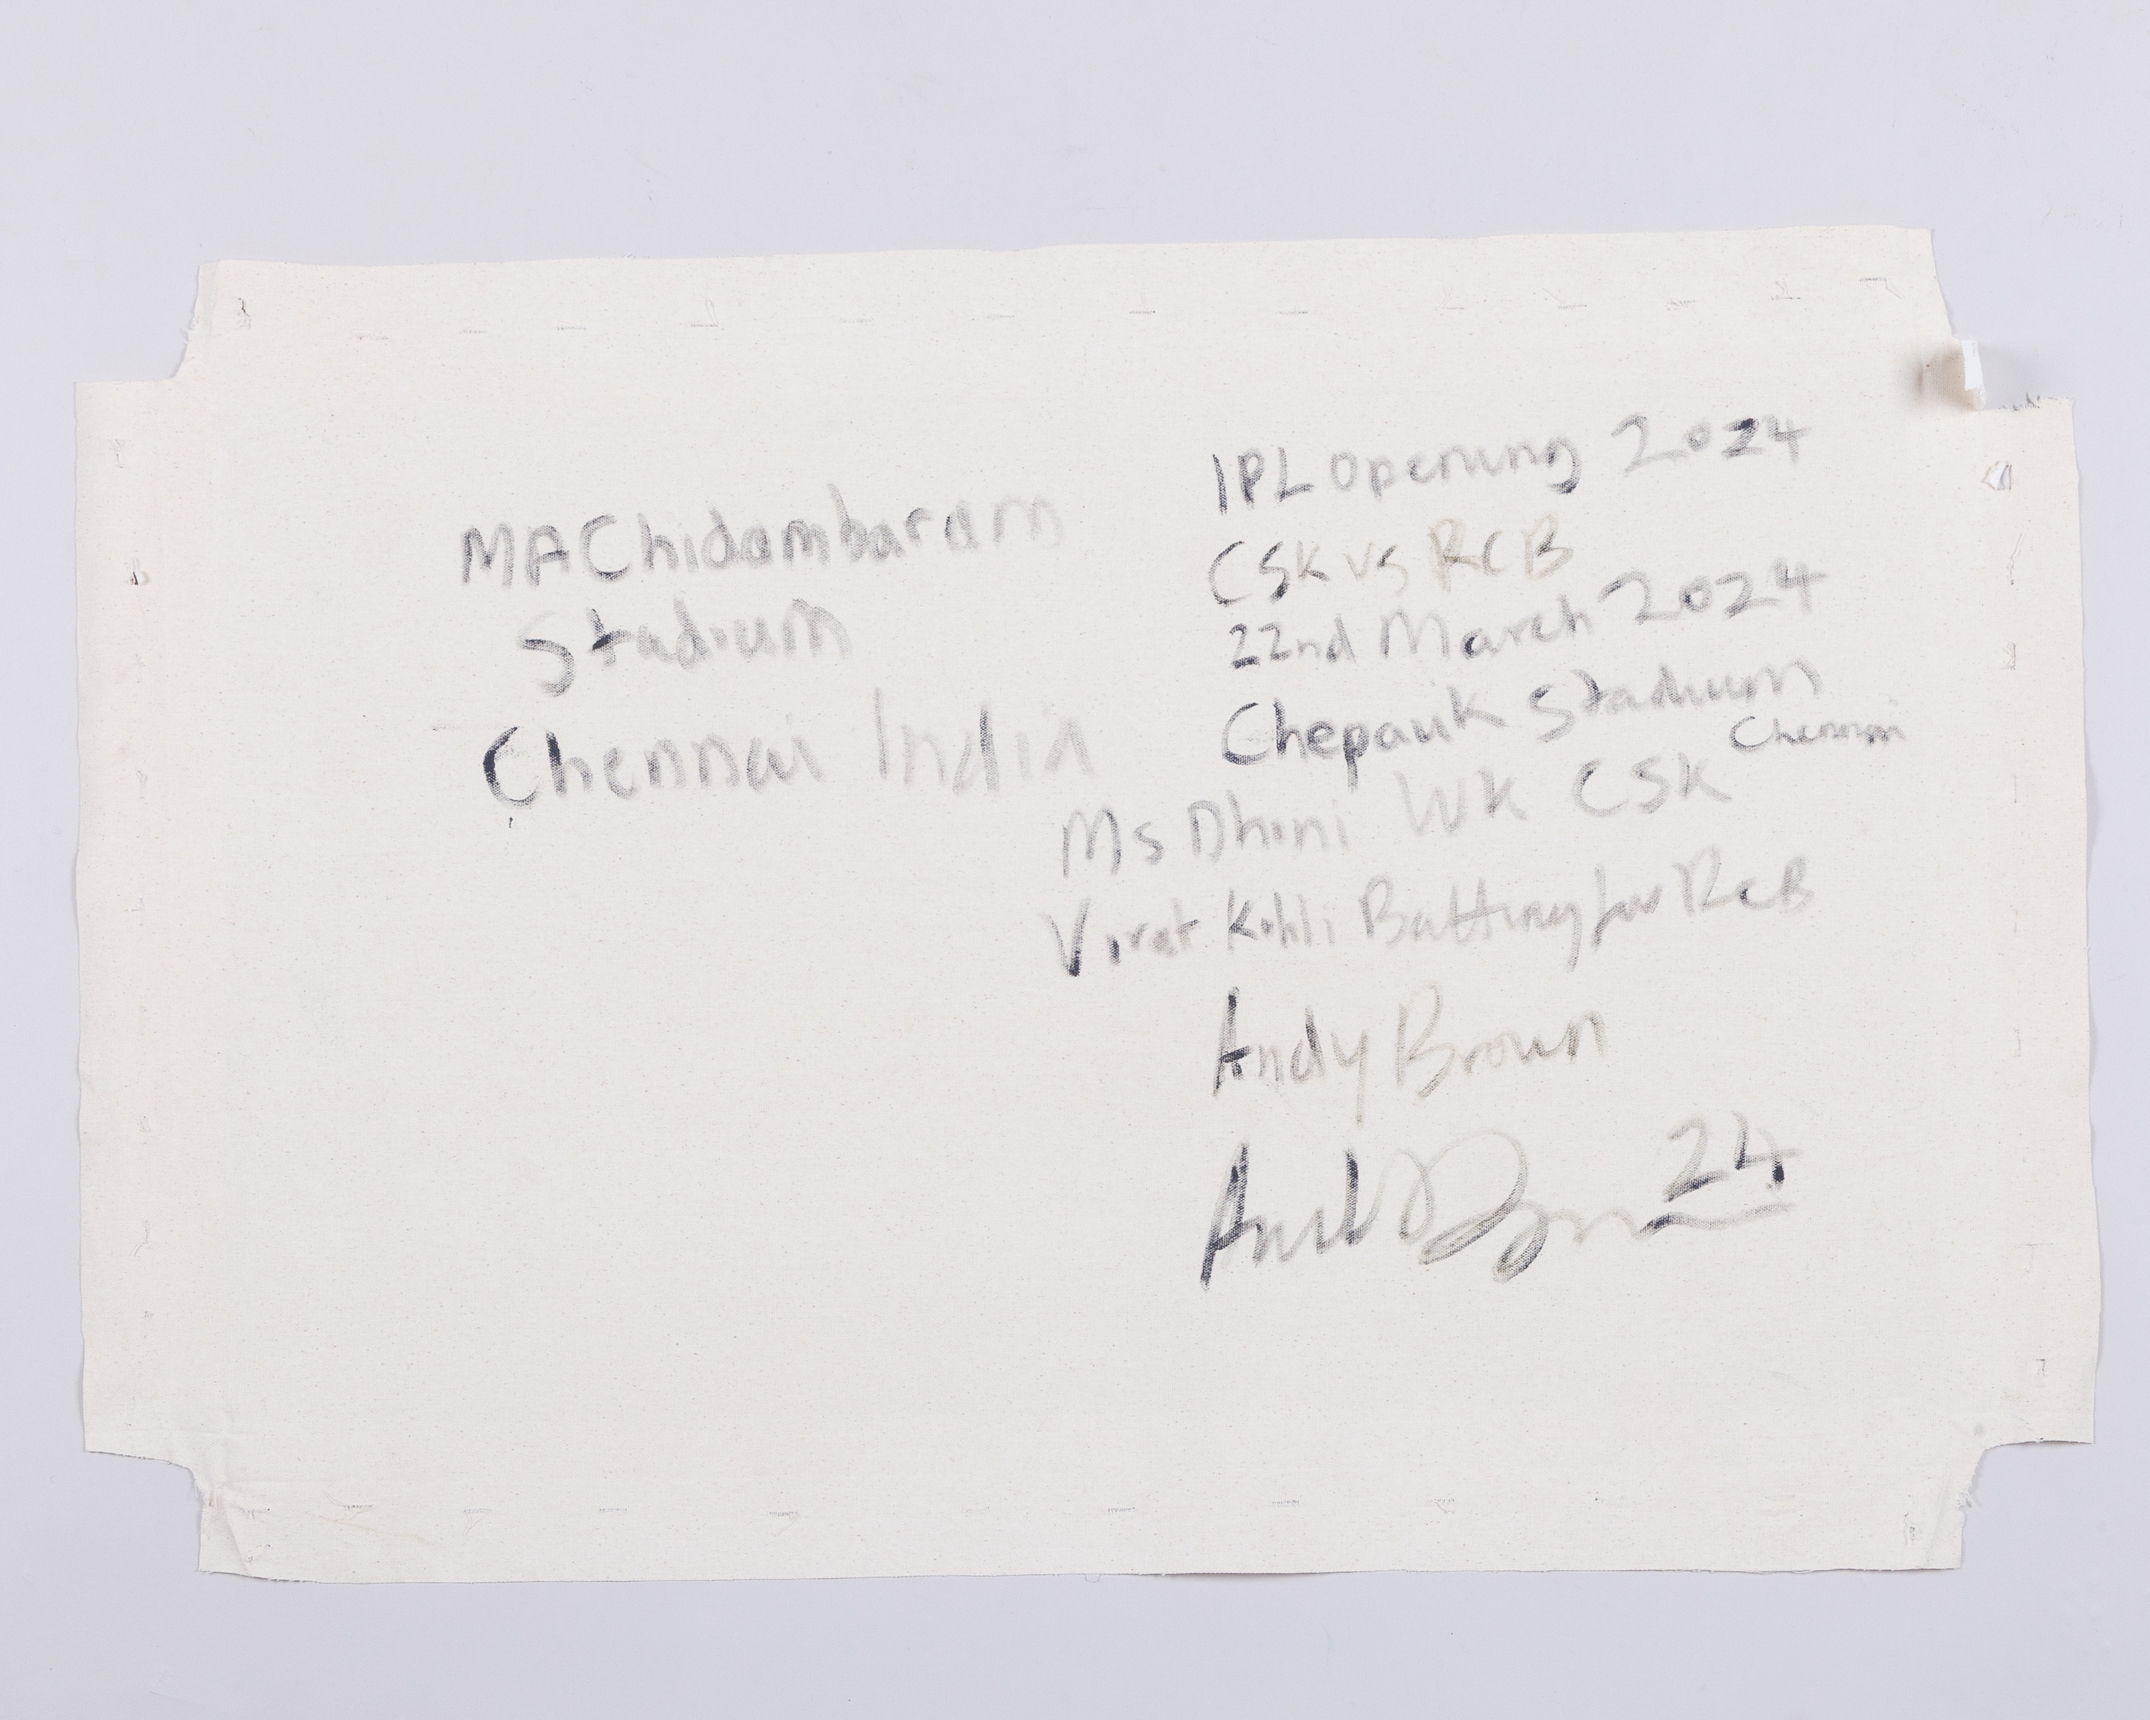 MA Chidambaram
Stadium
Chennai India
IPL opening 2024
CSK vs RCB
22nd March 2024
Chepauk Stadium
Chennai
Ms Dhoni WK CSK
Virat Kohli Batting for RCB
Andy Brown
Andy Brown 24